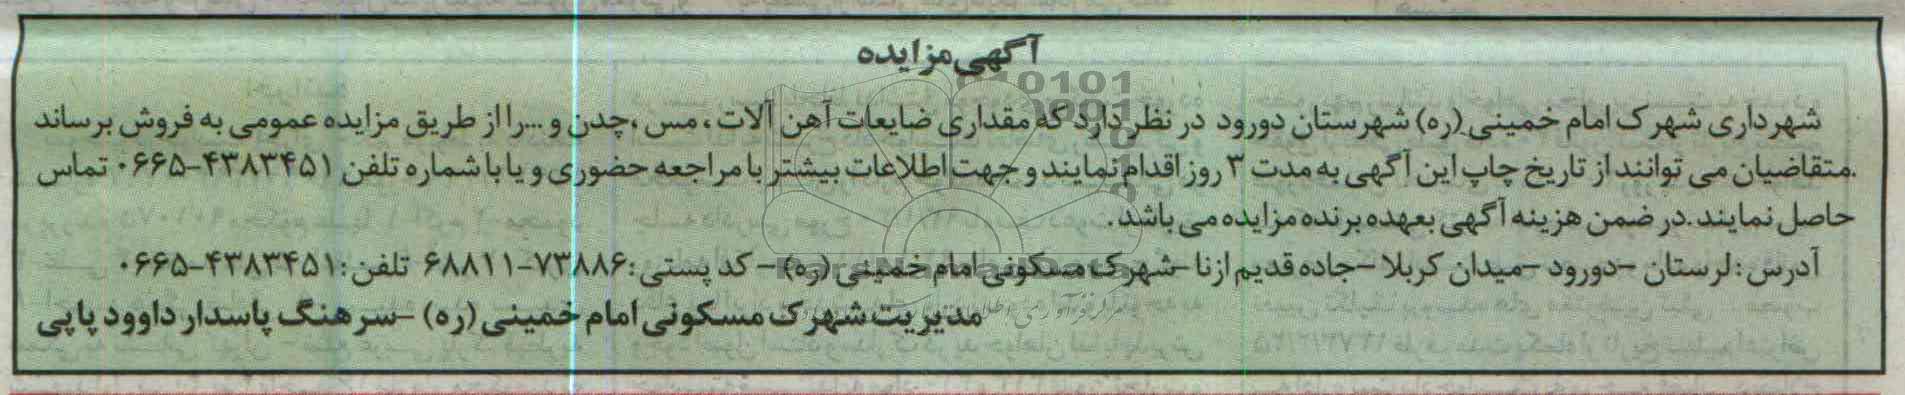 آگهی مزایده
شهرداری شهرک امام خمینی (ره) شهرستان دورود در نظر دارد که مقداری ضایعات آهن آلات، مس، چدن و ... را از طریق مزایده عمومی به فروش برساند
.متقاضیان می توانند از تاریخ چاپ این آگهی به مدت ۳ روز اقدام نمایند و جهت اطلاعات بیشتر با مراجعه حضوری و یا با شماره تلفن ۴۳۸۳۴۵۱-۰۶۶۵ تماس
حاصل نمایند. در ضمن هزینه آگهی بعهده برنده مزایده می باشد.
آدرس: لرستان –دورود –میدان کربلا –جاده قدیم ازنا –شهرک مسکونی امام خمینی (ره) – کد پستی: ۷۳۸۸۶-۶۸۸۱۱ تلفن: ۴۳۸۳۴۵۱-۰۶۶۵
مدیریت شهرک مسکونی امام خمینی (ره) –سرهنگ پاسدار داوود پاپی